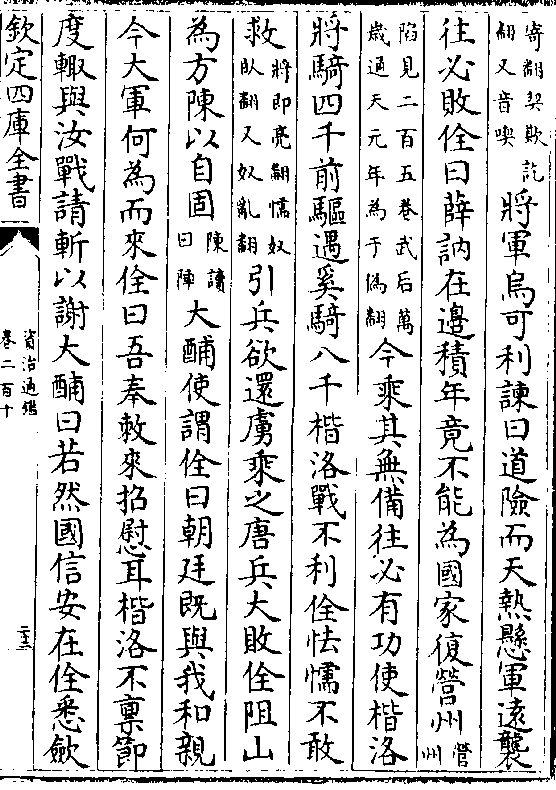 寄翻契欺訖翻又音喫將軍烏可利諫曰道險而天熱懸軍遠襲
往必敗佺曰薛訥在邊積年竟不能為國家復營州營州
陷見二百五卷武后萬歲通天元年為于偽翻今乘其無備往必有功使楷洛
將騎四千前驅遇奚騎八千楷洛戰不利佺怯懦不敢
救將即亮翻懦奴臥翻又奴亂翻引兵欲還虜乘之唐兵大敗佺阻山
為方陳以自固陳讀曰陣大酺使謂佺曰朝廷既與我和親
今大軍何為而來佺曰吾奉敕來招慰耳楷洛不稟節
度輙與汝戰請斬以謝大酺曰若然國信安在佺悉斂
欽定四庫全書
資治通鑑
卷二百十
二十三